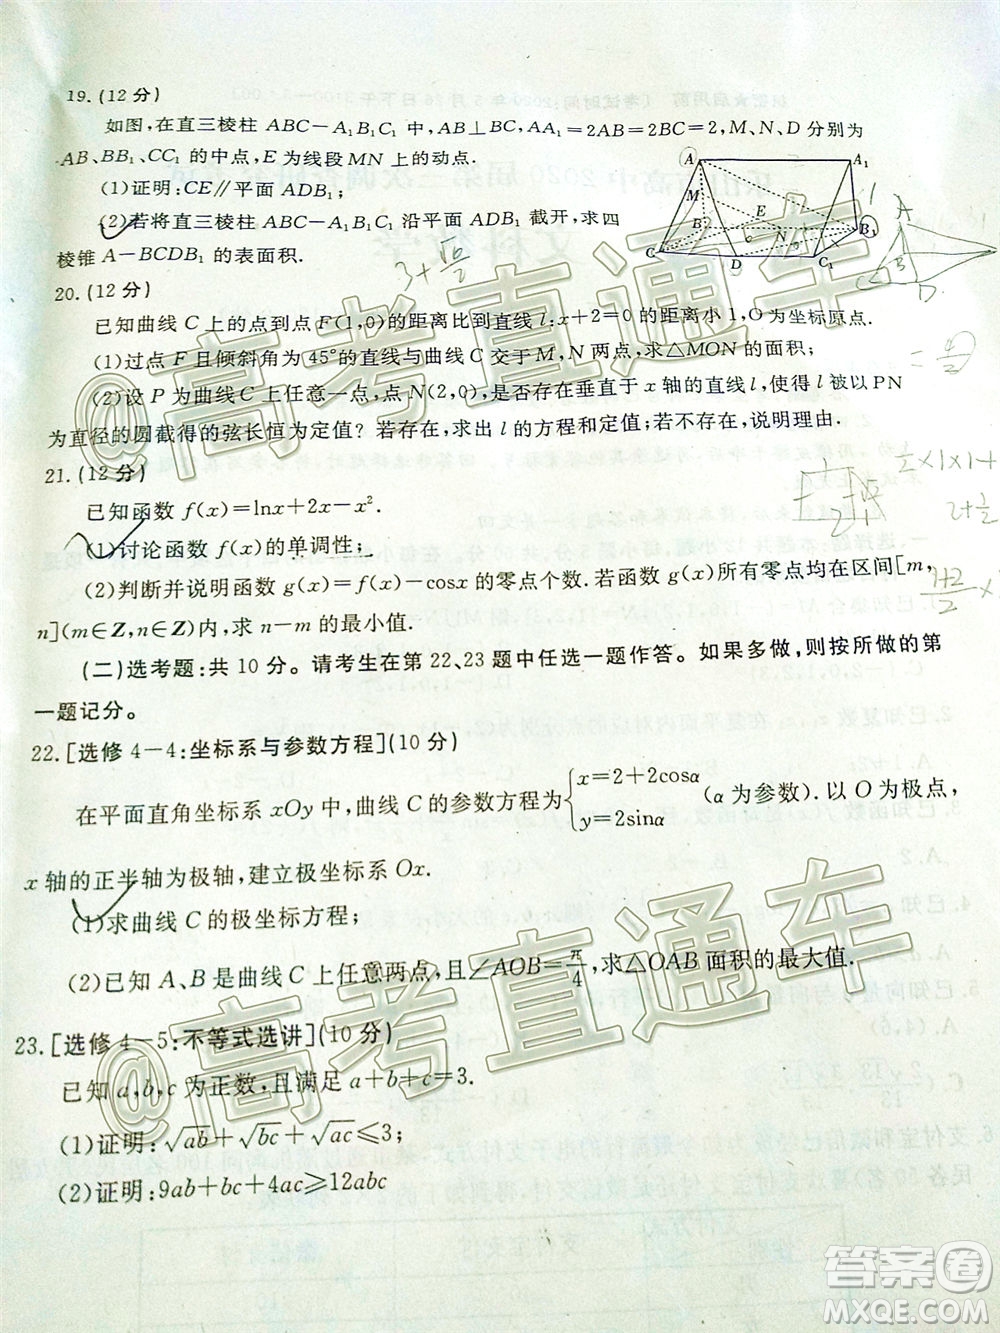 19.(12分)
如图,在直三棱柱 ABC－A₁B₁C₁ 中,AB⊥BC,AA₁=2AB=2BC=2,M,N,D 分别为
AB,BB₁,CC₁ 的中点,E 为线段 MN 上的动点.
(1)证明:CE∥平面 ADB₁;
(2)若将直三棱柱 ABC－A₁B₁C₁ 沿平面 ADB₁ 截开,求四
棱锥 A－BCDB₁ 的表面积.
A
A₁
M
E
B
N
B₁
C
D
C₁
20.(12分)
已知曲线 C 上的点到点 F(1,0)的距离比到直线 l:x+2=0 的距离小 1,O 为坐标原点.
(1)过点 F 且倾斜角为 45°的直线与曲线 C 交于 M,N 两点,求△MON 的面积;
(2)设 P 为曲线 C 上任意一点,点 N(2,0),是否存在垂直于 x 轴的直线 l,使得 l 被以 PN
为直径的圆截得的弦长恒为定值? 若存在,求出 l 的方程和定值;若不存在,说明理由.
21.(12分)
已知函数 f(x)=lnx+2x－x².
(1)讨论函数 f(x)的单调性;
(2)判断并说明函数 g(x)=f(x)－cosx 的零点个数. 若函数 g(x)所有零点均在区间[m,
n](m∈Z,n∈Z)内,求 n－m 的最小值.
(二)选考题:共 10 分。请考生在第 22、23 题中任选一题作答。如果多做,则按所做的第
一题记分。
22.[选修 4－4:坐标系与参数方程](10 分)
在平面直角坐标系 xOy 中,曲线 C 的参数方程为{x=2+2cosα
y=2sinα (α 为参数). 以 O 为极点,
x 轴的正半轴为极轴,建立极坐标系 Ox.
(1)求曲线 C 的极坐标方程;
(2)已知 A、B 是曲线 C 上任意两点,且∠AOB=π/4,求△OAB 面积的最大值.
23.[选修 4－5:不等式选讲](10 分)
已知 a,b,c 为正数,且满足 a+b+c=3.
(1)证明:√ab+√bc+√ac≤3;
(2)证明:9ab+bc+4ac≥12abc
@高考直通车
@高考直通车
答案圈
MXQE.COM